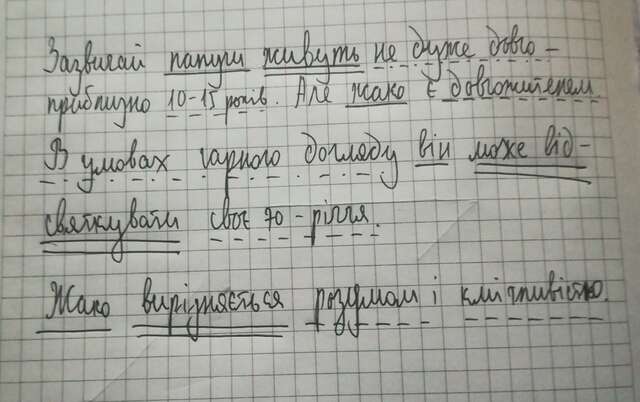 Зазвичай папуги живуть не дуже довго –
приблизно 10-15 років. Але жако є довгожителем.
В умовах гарного догляду він може від-
святкувати своє 70-річчя.
Жако вирізняється розумом і кмітливістю.